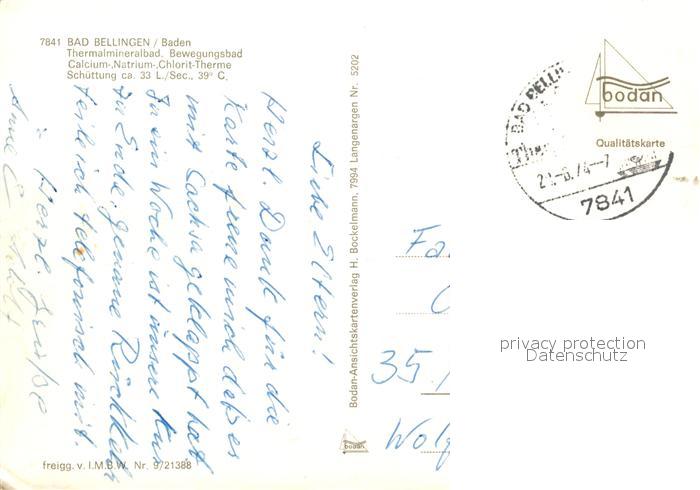 7841 BAD BELLINGEN / Baden
Thermalmineralbad. Bewegungsbad
Calcium-,Natrium-,Chlorit-Therme
Schüttung ca. 33 L./Sec., 39° C.
Liebe Eltern!
Herzl. Dank für die
Karte freue mich daß es
mit Sachsa geklappt hat
In ein Woche ist unsere Kur
zu Ende, genaue Rückkehr
teile ich telefonisch mit.
Herzl. Grüße
freigg. v. I.M.B.W. Nr. 9/21388
Bodan-Ansichtskartenverlag H. Bockelmann, 7994 Langenargen Nr. 5202
bodan
bodan
Qualitätskarte
BAD BELLI
7841
Fa
35
Wolf
privacy protection
Datenschutz